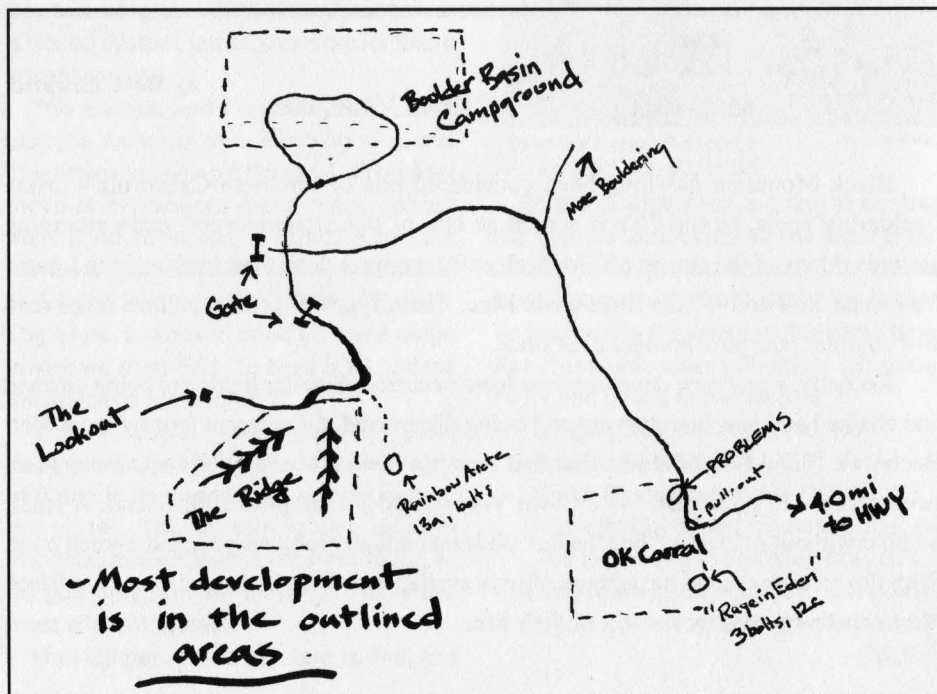 Boulder Basin
Campground
More Bouldering
Gate
The
Lookout
The Ridge
Rainbow
13a, bolts
PROBLEMS
40mi
to HWY
OK Corral
"Rage in Eden"
3 bolts, 12c
- Most development
is in the outlined
areas